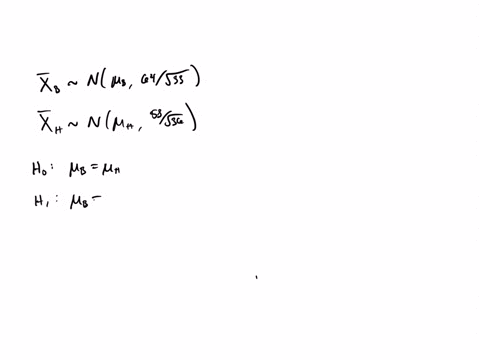 X̄_B ~ N(μ_B, 64/√35)
X̄_H ~ N(μ_H, 53/√36)
H₀: μ_B = μ_H
H₁: μ_B =